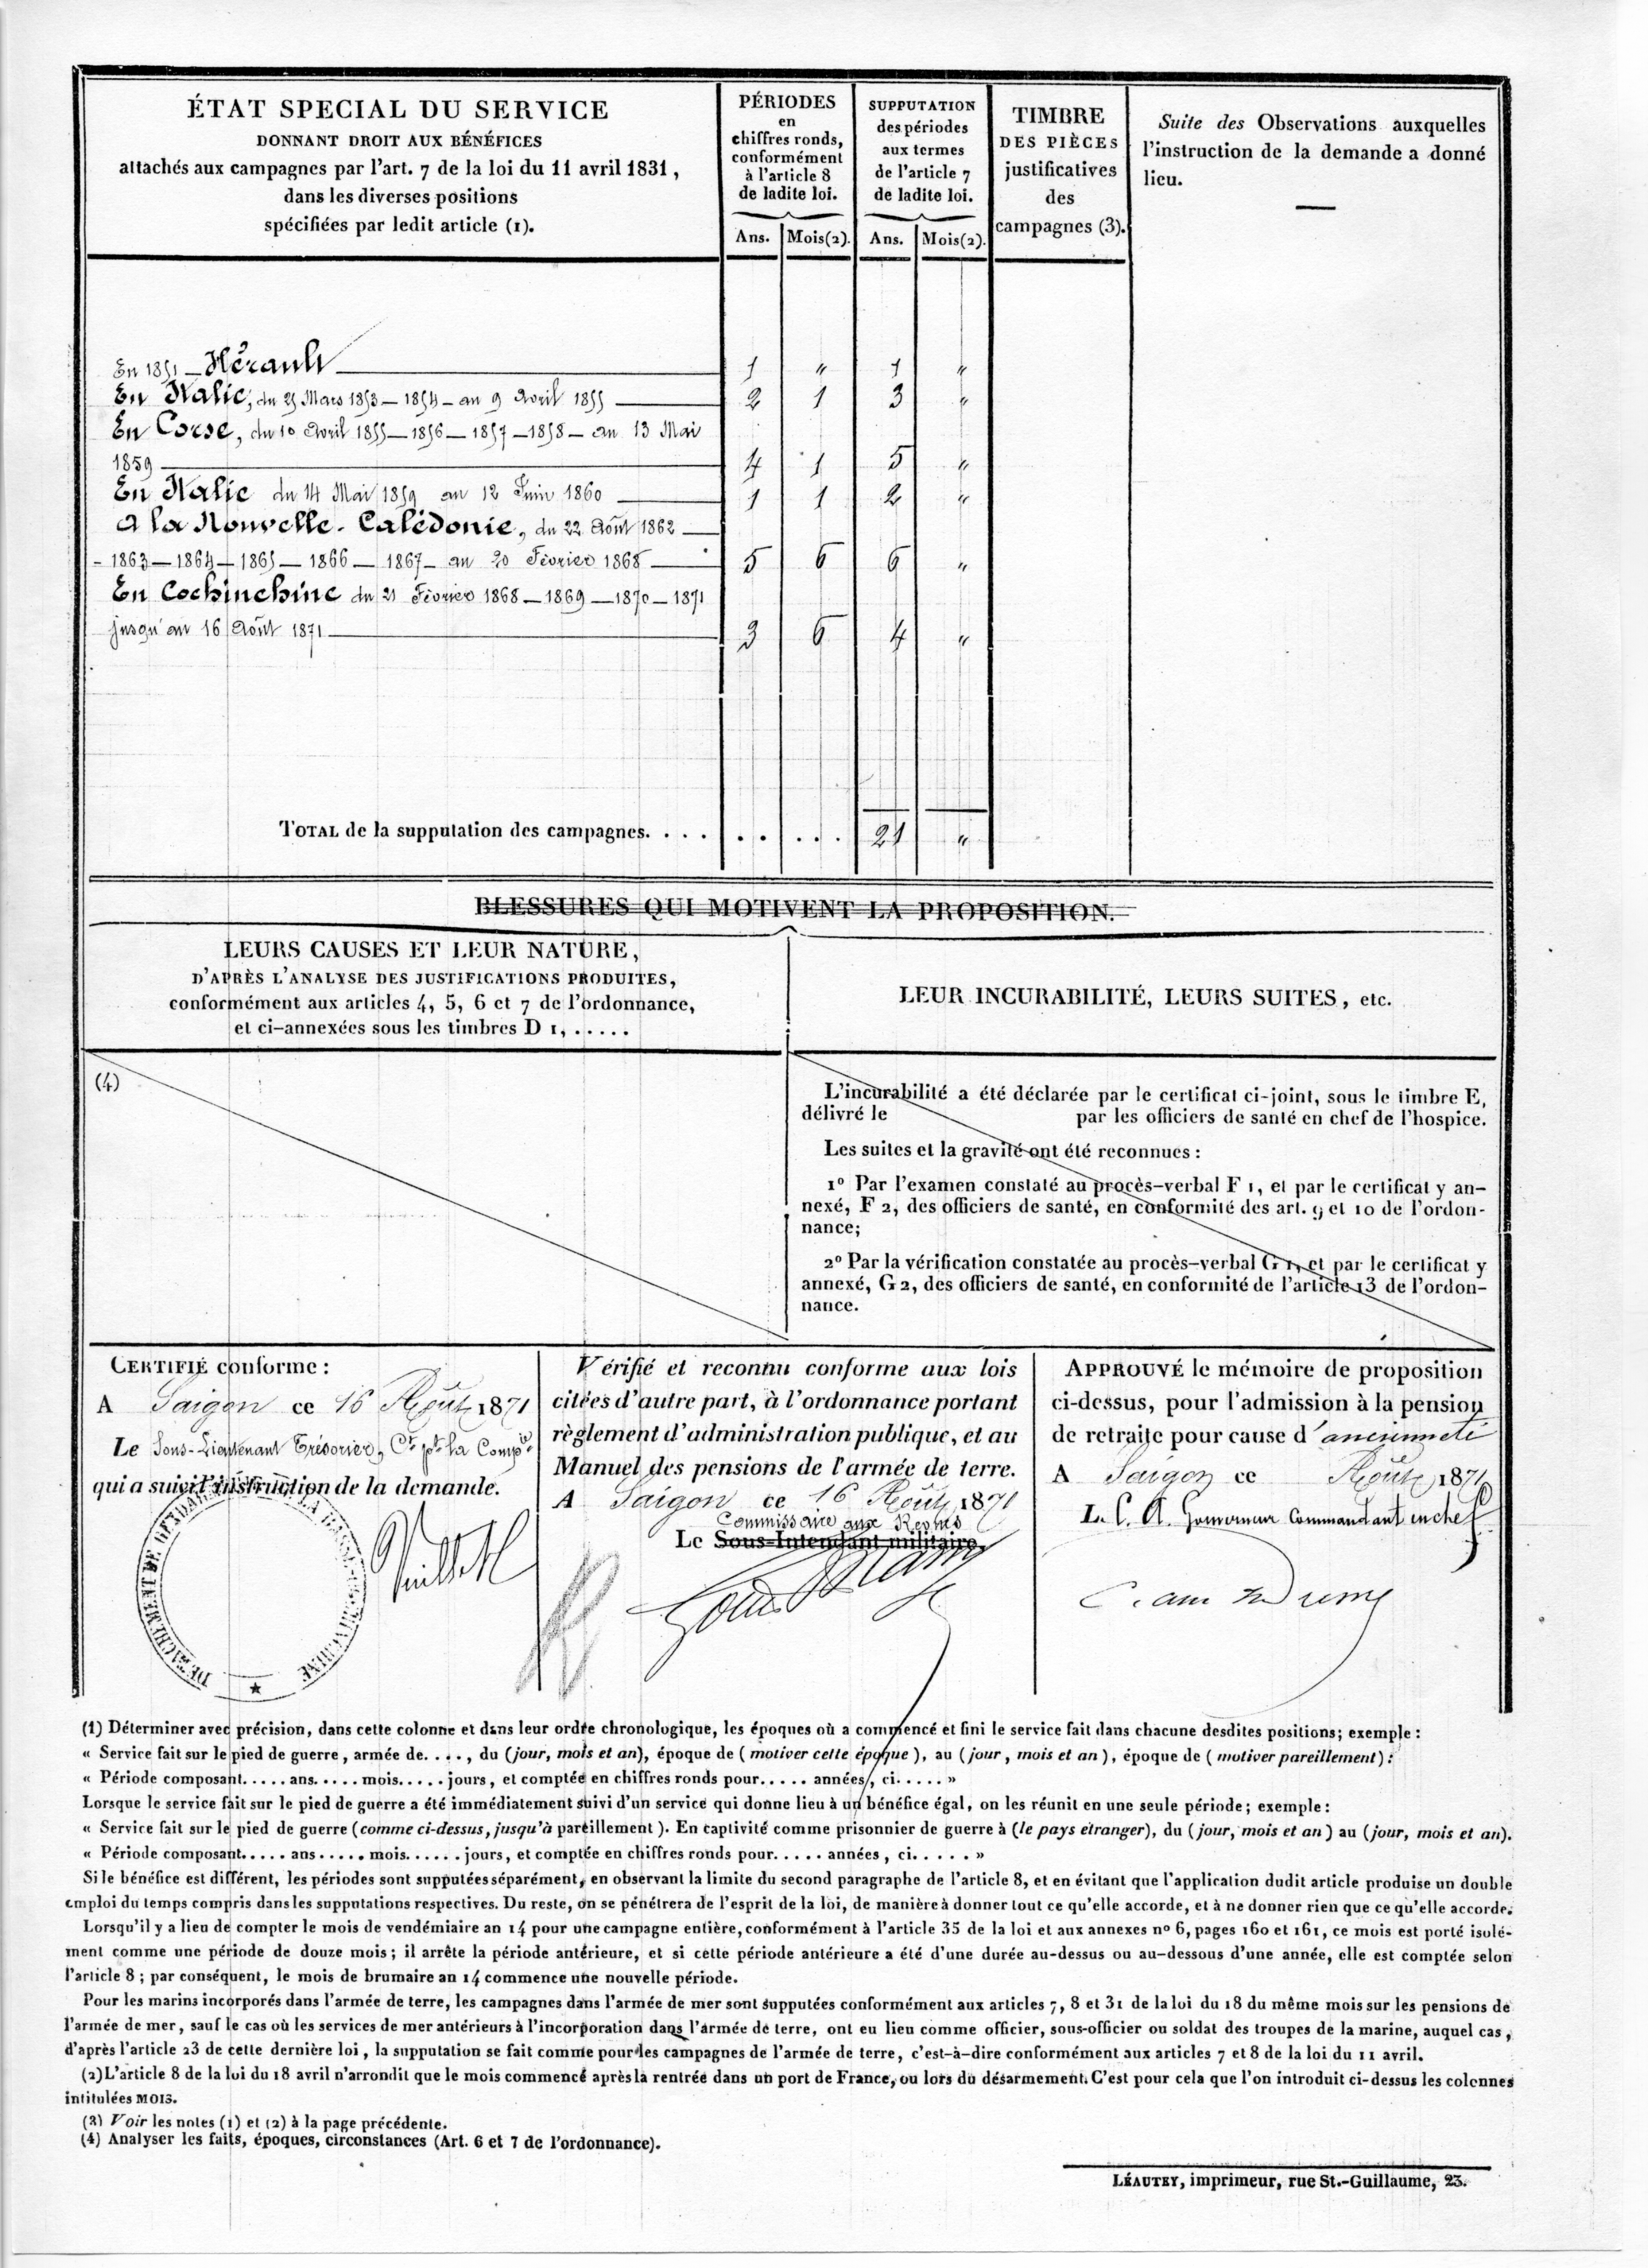 ÉTAT SPECIAL DU SERVICE
DONNANT DROIT AUX BÉNÉFICES
attachés aux campagnes par l'art. 7 de la loi du 11 avril 1831,
dans les diverses positions
spécifiées par ledit article (1).
PÉRIODES
en
chiffres ronds,
conformément
à l'article 8
de ladite loi.
Ans. Mois(2).
SUPPUTATION
des périodes
aux termes
de l'article 7
de ladite loi.
Ans. Mois(2).
TIMBRE
DES PIÈCES
justificatives
des
campagnes (3).
Suite des Observations auxquelles
l'instruction de la demande a donné
lieu.
En 1851 — Hérault 1 " 1 "
En Italie, du 25 Mars 1853 — 1854 — au 9 Avril 1855 2 1 3 "
En Corse, du 10 Avril 1855 — 1856 — 1857 — 1858 — au 13 Mai
1859 4 1 5 "
En Italie du 14 Mai 1859 au 12 Juin 1860 1 1 2 "
A la Nouvelle-Calédonie, du 22 Août 1862
- 1863 — 1864 — 1865 — 1866 — 1867 — au 20 Février 1868 5 6 6 "
En Cochinchine du 21 Février 1868 — 1869 — 1870 — 1871
jusqu'au 16 Août 1871 3 6 4 "
TOTAL de la supputation des campagnes. . . . . . . . . 21 "
BLESSURES QUI MOTIVENT LA PROPOSITION.
LEURS CAUSES ET LEUR NATURE,
D'APRÈS L'ANALYSE DES JUSTIFICATIONS PRODUITES,
conformément aux articles 4, 5, 6 et 7 de l'ordonnance,
et ci-annexées sous les timbres D 1, . . . . .
LEUR INCURABILITÉ, LEURS SUITES, etc.
(4)
L'incurabilité a été déclarée par le certificat ci-joint, sous le timbre E,
délivré le par les officiers de santé en chef de l'hospice.
Les suites et la gravité ont été reconnues :
1º Par l'examen constaté au procès-verbal F 1, et par le certificat y an-
nexé, F 2, des officiers de santé, en conformité des art. 9 et 10 de l'ordon-
nance;
2º Par la vérification constatée au procès-verbal G 1, et par le certificat y
annexé, G 2, des officiers de santé, en conformité de l'article 13 de l'ordon-
nance.
CERTIFIÉ conforme :
A Saigon ce 16 Août 1871
Le Sous-Lieutenant Trésorier, Ct pt la Compie
qui a suivi l'instruction de la demande.
DÉTACHEMENT DE GENDARMERIE DE LA BASSE-COCHINCHINE
Vérifié et reconnu conforme aux lois
citées d'autre part, à l'ordonnance portant
règlement d'administration publique, et au
Manuel des pensions de l'armée de terre.
A Saigon ce 16 Août 1871
Commissaire aux Revues
Le Sous-Intendant militaire,
APPROUVÉ le mémoire de proposition
ci-dessus, pour l'admission à la pension
de retraite pour cause d'ancienneté
A Saigon ce Août 1871
L. C. A. Gouverneur Commandant en chef
(1) Déterminer avec précision, dans cette colonne et dans leur ordre chronologique, les époques où a commencé et fini le service fait dans chacune desdites positions; exemple :
« Service fait sur le pied de guerre, armée de. . . ., du (jour, mois et an), époque de (motiver cette époque), au (jour, mois et an), époque de (motiver pareillement) :
« Période composant. . . . . ans. . . . . mois. . . . . jours, et comptée en chiffres ronds pour. . . . . années, ci. . . . . »
Lorsque le service fait sur le pied de guerre a été immédiatement suivi d'un service qui donne lieu à un bénéfice égal, on les réunit en une seule période; exemple :
« Service fait sur le pied de guerre (comme ci-dessus, jusqu'à pareillement). En captivité comme prisonnier de guerre à (le pays étranger), du (jour, mois et an) au (jour, mois et an).
« Période composant. . . . . ans . . . . . mois. . . . . . jours, et comptée en chiffres ronds pour. . . . . années, ci. . . . . »
Si le bénéfice est différent, les périodes sont supputées séparément, en observant la limite du second paragraphe de l'article 8, et en évitant que l'application dudit article produise un double
emploi du temps compris dans les supputations respectives. Du reste, on se pénétrera de l'esprit de la loi, de manière à donner tout ce qu'elle accorde, et à ne donner rien que ce qu'elle accorde.
Lorsqu'il y a lieu de compter le mois de vendémiaire an 14 pour une campagne entière, conformément à l'article 35 de la loi et aux annexes nº 6, pages 160 et 161, ce mois est porté isolé-
ment comme une période de douze mois; il arrête la période antérieure, et si cette période antérieure a été d'une durée au-dessus ou au-dessous d'une année, elle est comptée selon
l'article 8; par conséquent, le mois de brumaire an 14 commence une nouvelle période.
Pour les marins incorporés dans l'armée de terre, les campagnes dans l'armée de mer sont supputées conformément aux articles 7, 8 et 31 de la loi du 18 du même mois sur les pensions de
l'armée de mer, sauf le cas où les services de mer antérieurs à l'incorporation dans l'armée de terre, ont eu lieu comme officier, sous-officier ou soldat des troupes de la marine, auquel cas,
d'après l'article 23 de cette dernière loi, la supputation se fait comme pour les campagnes de l'armée de terre, c'est-à-dire conformément aux articles 7 et 8 de la loi du 11 avril.
(2) L'article 8 de la loi du 18 avril n'arrondit que le mois commencé après la rentrée dans un port de France, ou lors du désarmement. C'est pour cela que l'on introduit ci-dessus les colonnes
intitulées MOIS.
(3) Voir les notes (1) et (2) à la page précédente.
(4) Analyser les faits, époques, circonstances (Art. 6 et 7 de l'ordonnance).
LÉAUTEY, imprimeur, rue St.-Guillaume, 23.